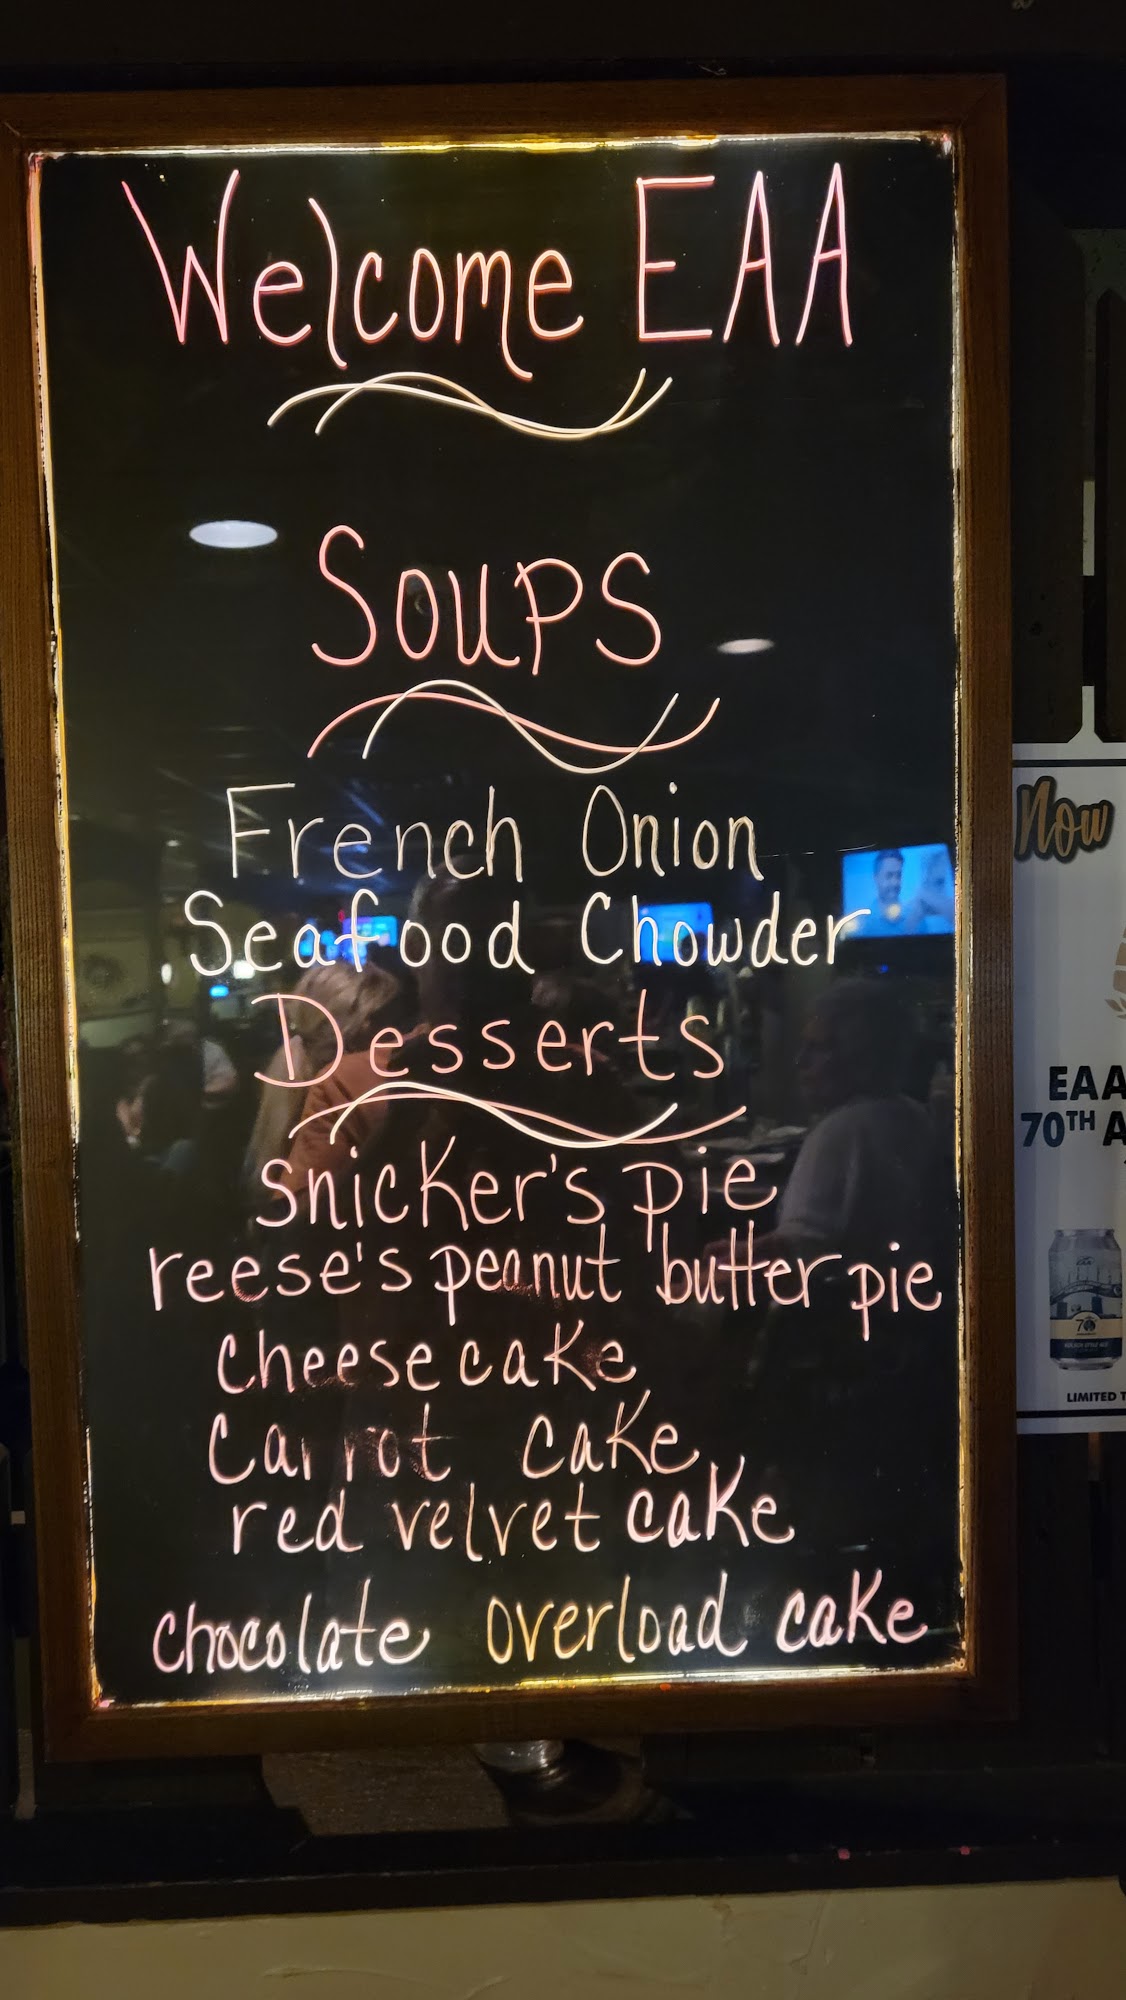 Welcome EAA
Soups
French Onion
Seafood Chowder
Desserts
snicker's pie
reese's peanut butter pie
cheesecake
carrot cake
red velvet cake
chocolate overload cake
Now
EAA
70TH A
70
LIMITED T